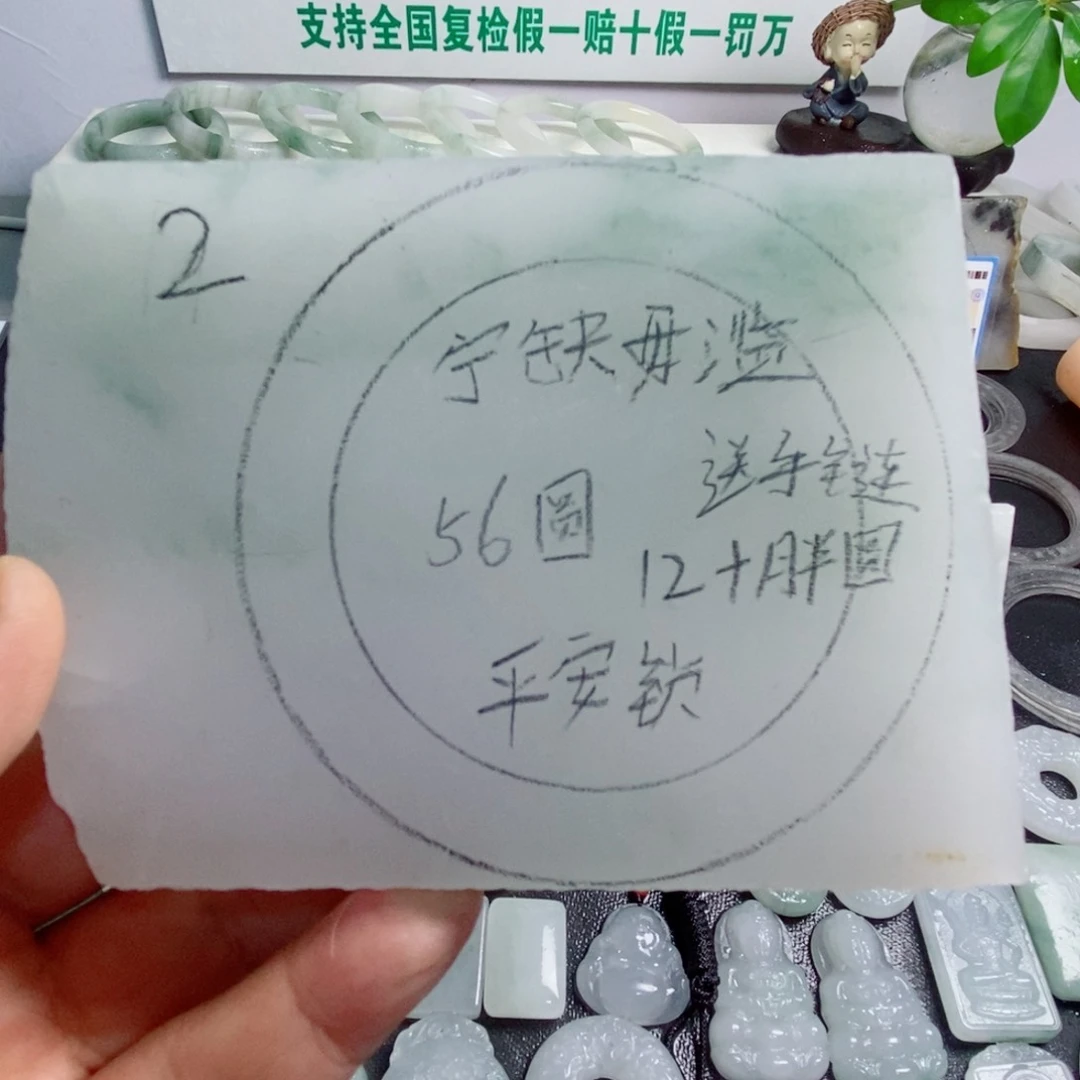 支持全国复检假一赔十假一罚万
2
宁缺毋滥
送手链
56圆
12+胖圆
平安锁